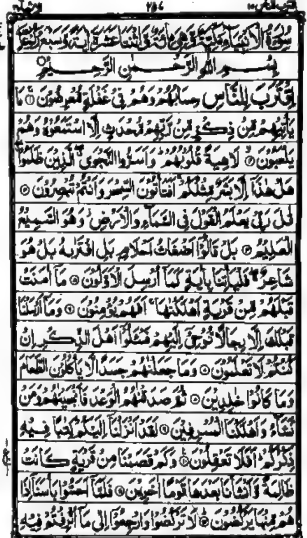 سُوْرَةُ الْاَنْۢبِيَآءِ مَكِّيَّةٌ وَّهِيَ مِائَةٌ وَّاثْنَتَا عَشْرَةَ اٰيَةً وَّسَبْعُ رُكُوْعَاتٍ
بِسْمِ اللّٰهِ الرَّحْمٰنِ الرَّحِيْمِ
اِقْتَرَبَ لِلنَّاسِ حِسَابُهُمْ وَهُمْ فِيْ غَفْلَةٍ مُّعْرِضُوْنَ ۝ مَا
يَاْتِيْهِمْ مِّنْ ذِكْرٍ مِّنْ رَّبِّهِمْ مُّحْدَثٍ اِلَّا اسْتَمَعُوْهُ وَهُمْ
يَلْعَبُوْنَ ۝ لَاهِيَةً قُلُوْبُهُمْ ؕ وَاَسَرُّوا النَّجْوَى الَّذِيْنَ ظَلَمُوْا
هَلْ هٰذَاۤ اِلَّا بَشَرٌ مِّثْلُكُمْ ۚ اَفَتَاْتُوْنَ السِّحْرَ وَاَنْتُمْ تُبْصِرُوْنَ ۝
قٰلَ رَبِّيْ يَعْلَمُ الْقَوْلَ فِي السَّمَآءِ وَالْاَرْضِ ؗ وَهُوَ السَّمِيْعُ
الْعَلِيْمُ ۝ بَلْ قَالُوْۤا اَضْغَاثُ اَحْلَامٍۭ بَلِ افْتَرٰىهُ بَلْ هُوَ
شَاعِرٌ ۖ فَلْيَاْتِنَا بِاٰيَةٍ كَمَاۤ اُرْسِلَ الْاَوَّلُوْنَ ۝ مَاۤ اٰمَنَتْ
قَبْلَهُمْ مِّنْ قَرْيَةٍ اَهْلَكْنٰهَا ۚ اَفَهُمْ يُؤْمِنُوْنَ ۝ وَمَاۤ اَرْسَلْنَا
قَبْلَكَ اِلَّا رِجَالًا نُّوْحِيْۤ اِلَيْهِمْ فَسْـَٔلُوْۤا اَهْلَ الذِّكْرِ اِنْ
كُنْتُمْ لَا تَعْلَمُوْنَ ۝ وَمَا جَعَلْنٰهُمْ جَسَدًا لَّا يَاْكُلُوْنَ الطَّعَامَ
وَمَا كَانُوْا خٰلِدِيْنَ ۝ ثُمَّ صَدَقْنٰهُمُ الْوَعْدَ فَاَنْجَيْنٰهُمْ وَمَنْ
نَّشَآءُ وَاَهْلَكْنَا الْمُسْرِفِيْنَ ۝ لَقَدْ اَنْزَلْنَاۤ اِلَيْكُمْ كِتٰبًا فِيْهِ
ذِكْرُكُمْ ؕ اَفَلَا تَعْقِلُوْنَ ۝ وَكَمْ قَصَمْنَا مِنْ قَرْيَةٍ كَانَتْ
ظَالِمَةً وَّاَنْشَاْنَا بَعْدَهَا قَوْمًا اٰخَرِيْنَ ۝ فَلَمَّاۤ اَحَسُّوْا بَاْسَنَاۤ اِذَا
هُمْ مِّنْهَا يَرْكُضُوْنَ ۝ لَا تَرْكُضُوْا وَارْجِعُوْۤا اِلٰى مَاۤ اُتْرِفْتُمْ فِيْهِ